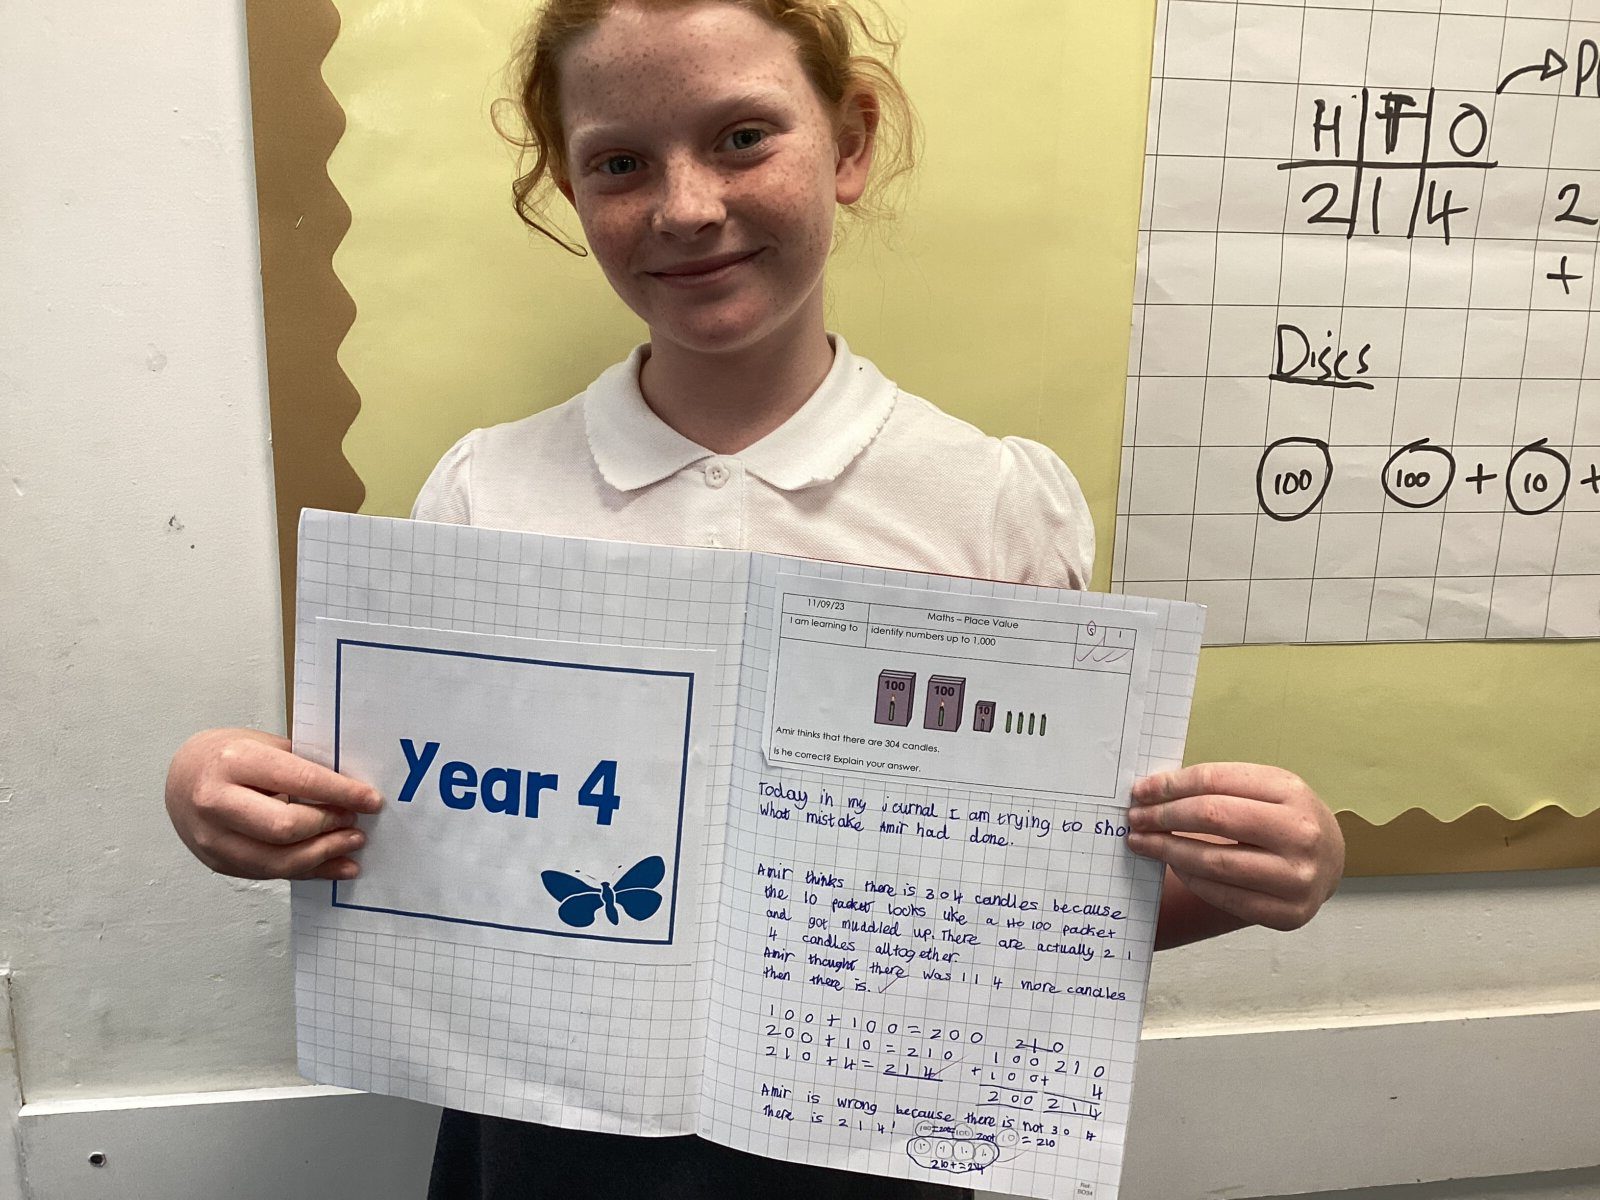 H T O
2 1 4
2
+
Discs
100 100 + 10 +
Year 4
11/09/23 Maths – Place Value
I am learning to identify numbers up to 1,000
S 1
100 100 10
Amir thinks that there are 304 candles.
Is he correct? Explain your answer.
Today in my journal I am trying to sho
what mistake Amir had done.
Amir thinks there is 304 candles because
the 10 packet looks like a 100 packet
and got muddled up. There are actually 21
4 candles alltogether.
Amir thought there was 114 more candles
then there is.
100 + 100 = 200
200 + 10 = 210
210 + 4 = 214
210
100 210
+ 100 + 4
200 214
Amir is wrong because there is not 304
there is 214!
100 100 10 = 210
210 + = 214
Ref:
BD34